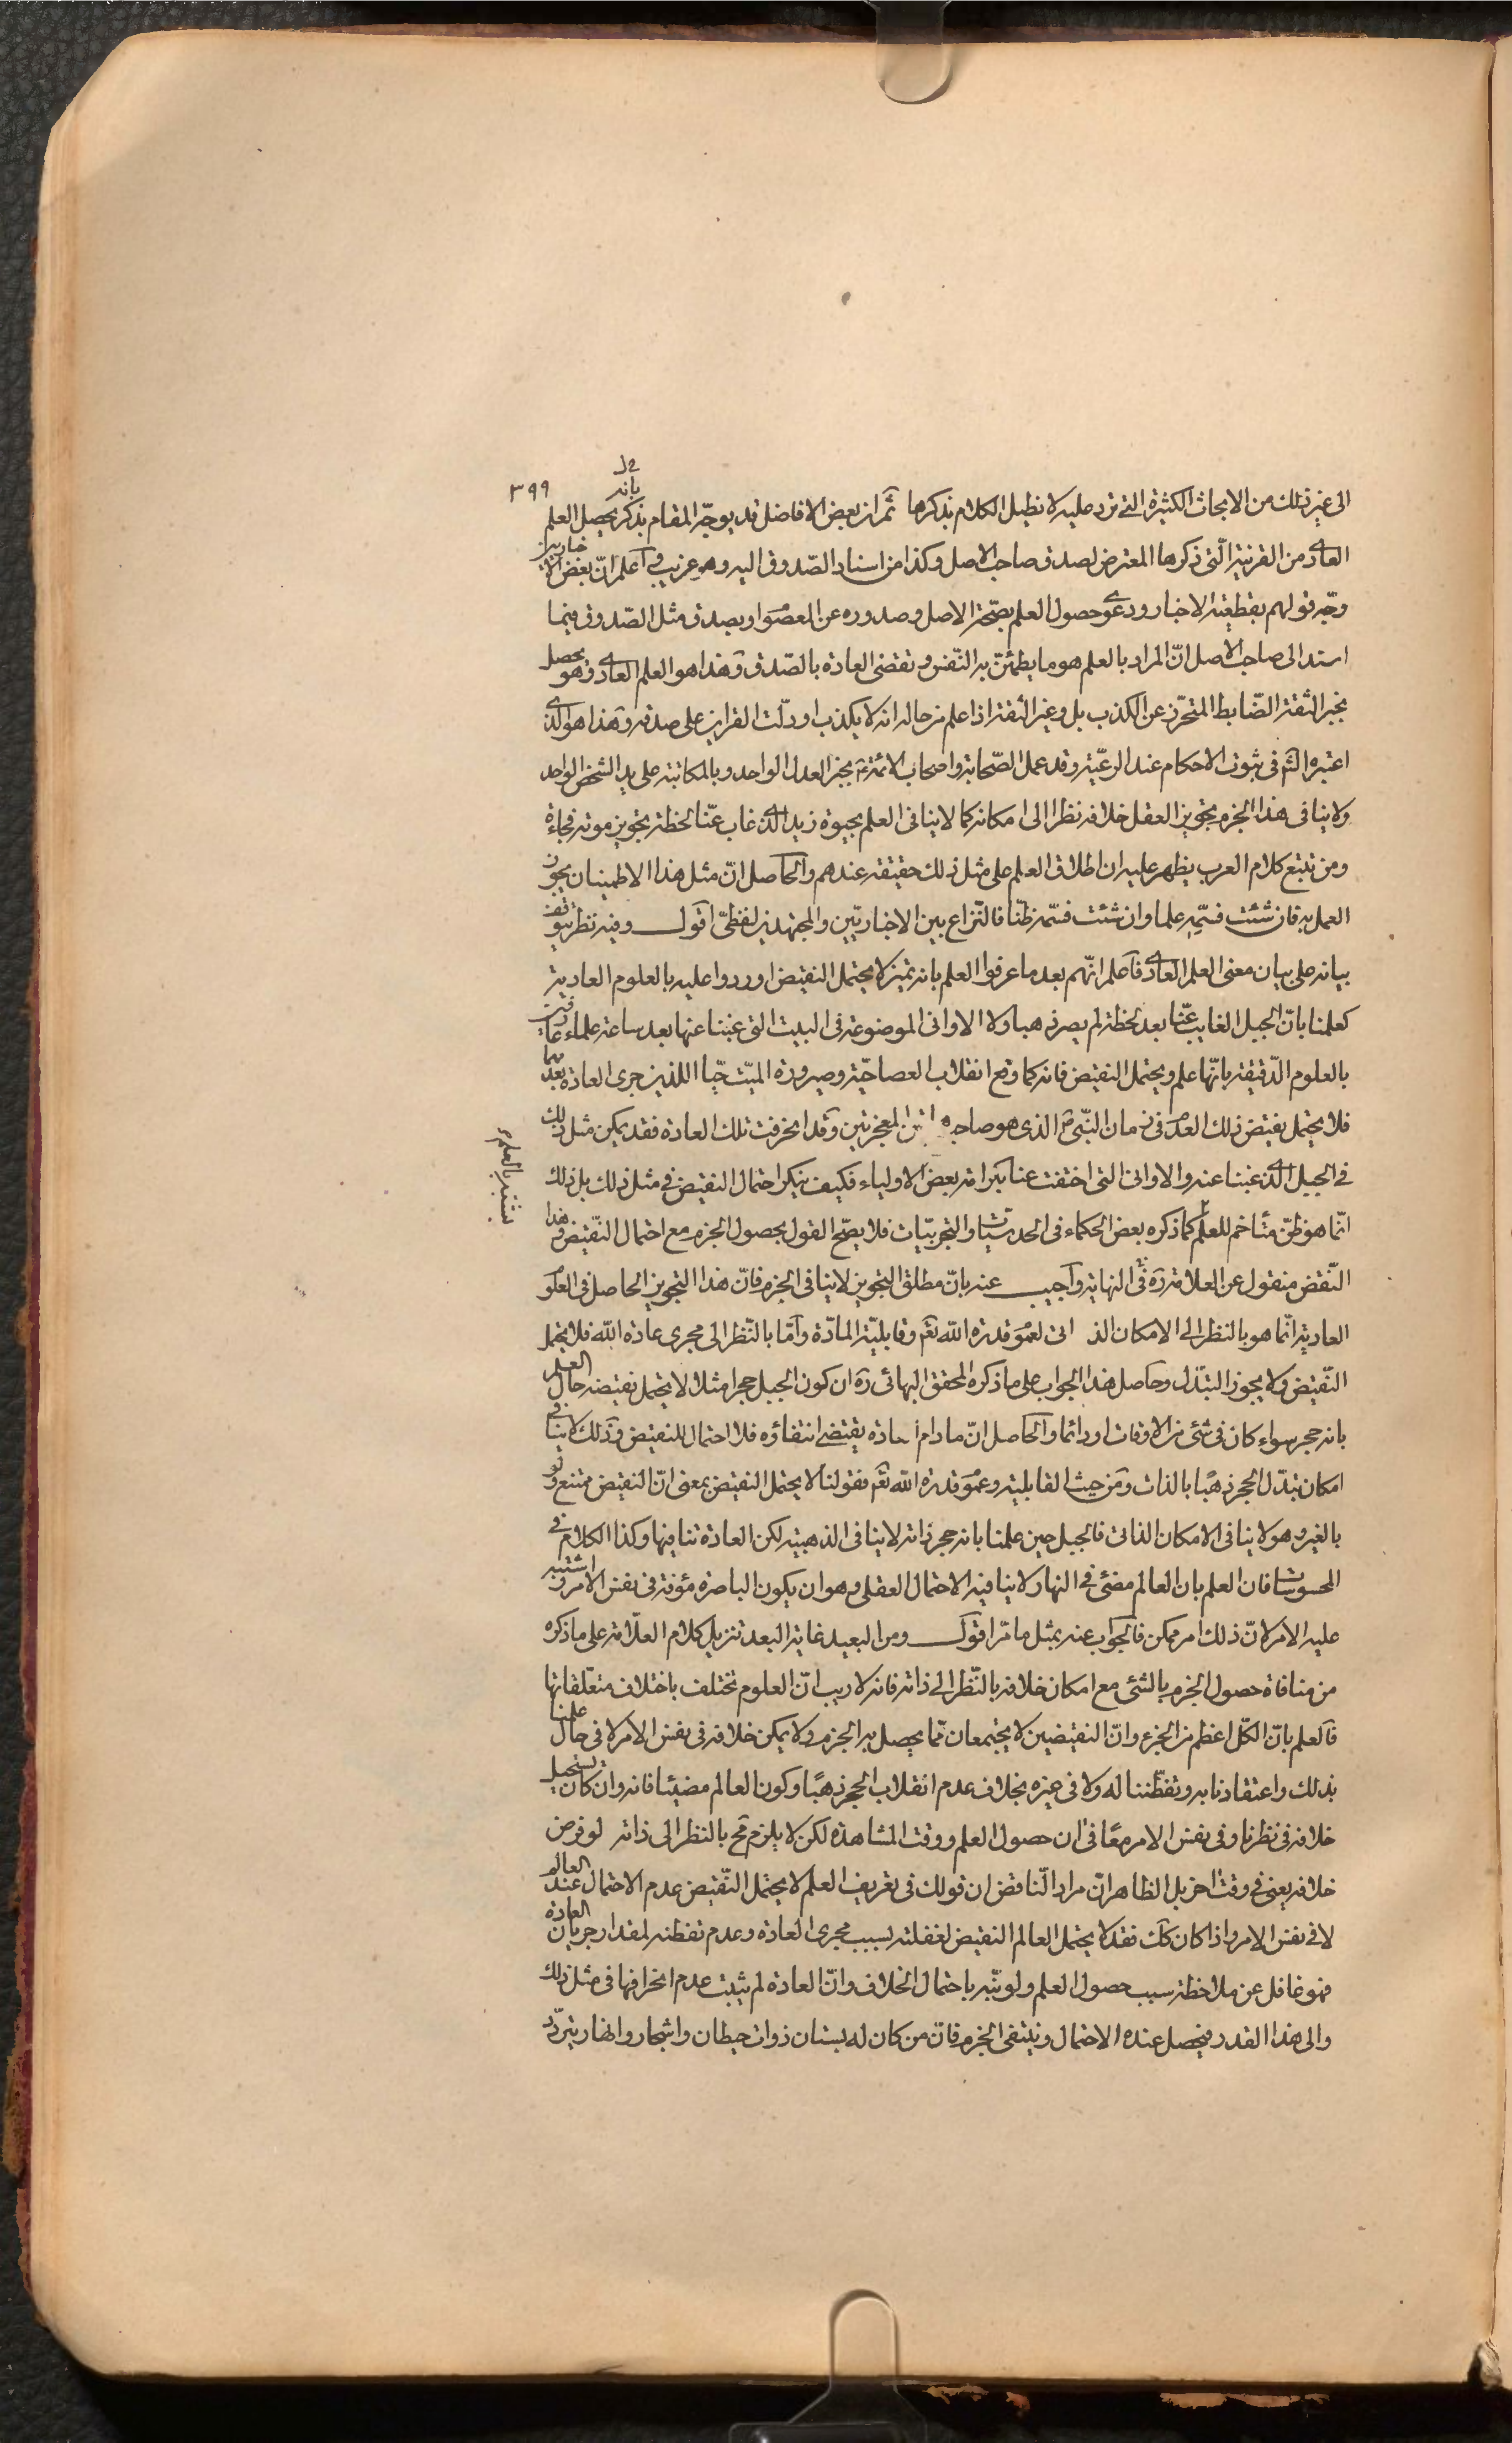 ٣٩٩
بانه
الى غير ذلك من الابحاث الكثيرة التى ترد عليه لا نطيل الكلام بذكرها ثمّ ان بعض الافاضل قد يوجّه المقام بذكر يحصل العلم
العادى من القرنية الّتى ذكرها المعترض لصدق صاحب الاصل وكذا من اسناد الصّدوق اليه وهو غريب واعلم انّ بعض الاخباريين
وجّه قولهم بقطعيّة الاخبار ودعوى حصول العلم بصّحة الاصل وصدوره عن المعصوم او بصدق مثل الصّدوق فيما
اسند الى صاحب الاصل انّ المراد بالعلم هو ما يطمئنّ به النّفس وتقضى العادة بالصّدق وهذا هو العلم العادى وهو يحصل
بخبر الثقة الضّابط المتحرّز عن الكذب بل وغير الثقة اذا علم من حاله انه لا يكذب او دلّت القراين على صدقه وهذا هو الّذى
اعتبره الشّ فى ثبوت الاحكام عند الرعيّة وقد عمل الصّحابة واصحاب الائمّة ع بخبر العدل الواحد وبالمكاتبة على يد الشخص الواحد
ولا ينافى هذا الجزم تجويز العقل خلافه نظرا الى امكانه كما لا ينافى العلم بحيوة زيد الّذى غاب عنّا لحظة تجويز موته فجاءة
ومن تتبع كلام العرب يظهر عليه ان اطلاق العلم على مثل ذلك حقيقة عندهم والحاصل انّ مثل هذا الاطمينان يجوز
العمل به فان شئت فسمّه علما وان شئت فسمّه ظنّا فالنّزاع بين الاخباريّين والمجتهدين لفظىّ اقول وفيه نظر يتوقف
بيانه على بيان معنى العلم العادى فاعلم انّهم بعد ما عرفوا العلم بانه تميز لا يحتمل النقيض اوردوا عليه بالعلوم العادية
كعلمنا بانّ الجبل الغايب عنّا بعد لحظة لم يصر ذهبا ولا الاوانى الموضوعة فى البيت التى غبنا عنها بعد ساعة علماء عارفين
بالعلوم الدّقيقة بانّها علم ويحتمل النقيض فانه كما وقع انقلاب العصا حيّة وصيرورة الميّت حيّا اللذين جرى العادة بعدمهما
فلا يحتمل نقيض ذلك العدم فى زمان النّبىّ الذى هو صاحب المعجزتين وقد انخرقت تلك العادة فقد يمكن مثل ذلك
يشتبه بالعلوم
فى الجبل الّذى غبنا عنه والاوانى التى اختفت عنا بكرامة بعض الاولياء فكيف ينكر احتمال النقيض فى مثل ذلك بل ذلك
انّما هو ظنّ متأخم للعلم كما ذكره بعض الحكماء فى الحدسيّات والتجربيّات فلا يصّح القول بحصول الجزم مع احتمال النّقيض وهذا
النّقض منقول عن العلامة ره فى النهاية واجيب عنه بانّ مطلق التجويز لا ينافى الجزم فانّ هذا التجويز الحاصل فى العلوم
العادية انّما هو بالنظر الى الامكان الذاتى لعموم قدرة الله تعم وقابليّة المادّة وامّا بالنّظر الى مجرى عادة الله فلا يحتمل
النّقيض ولا يجوز التبدّل وحاصل هذا الجواب على ما ذكره المحقق البهائى ره ان كون الجبل حجرا مثلا لا يحتمل نقيضه حال العلم
بانه حجر سواء كان فى شئ من الاوقات او دائما والحاصل انّ ما دام العادة يقتضى انتفاؤه فلا احتمال للنقيض وذلك لا ينافى
امكان تبدّل الحجر ذهبًا بالذات ومن حيث القابلية وعموم قدرة الله تعم فقولنا لا يحتمل النقيض بمعنى انّ النقيض ممتنع ولو
بالغير وهو لا ينافى الامكان الذاتى فالجبل حين علمنا بانه حجر ذاته لا ينافى الذهبية لكن العادة تنافيها وكذا الكلام فى
المحسوسات فان العلم بان العالم مضئ فى النهار لا ينافيه الاحتمال العقلى وهو ان يكون الباصرة مؤفة فى نفس الامر واشتبه
عليه الامر لانّ ذلك امر ممكن فالجواب عنه بمثل ما مرّ اقول ومن البعيد غاية البعد تنزيل كلام العلّامة على ما ذكره
من منافاة حصول الجزم بالشئ مع امكان خلافه بالنّظر الى ذاته فانه لا ريب انّ العلوم تختلف باختلاف متعلّقاتها
فالعلم بانّ الكلّ اعظم من الجزء وانّ النقيضين لا يجتمعان ممّا يحصل به الجزم ولا يمكن خلافه فى نفس الامر لا فى حال علمنا
بذلك واعتقادنا به وتفطّننا له ولا فى غيره بخلاف عدم انقلاب الحجر ذهبًا وكون العالم مضيئا فانه وان كان يستحيل
خلافه فى نظرنا وفى نفس الامر معًا فى ان حصول العلم ووقت المشاهدة لكن لا يلزم مح بالنظر الى ذاته لو فرض
خلافه يعنى فى وقت اخر بل الظاهر انّ مراد النّاقض ان قولك فى تعريف العلم لا يحتمل النّقيض عدم الاحتمال عند العالم
لا فى نفس الامر واذا كان كك فقد لا يحتمل العالم النقيض لغفلته بسبب مجرى العادة وعدم تفطنه لمقدار جريان العادة
فهو غافل عن ملاحظة سبب حصول العلم ولو نبّه باحتمال الخلاف وانّ العادة لم يثبت عدم انخرافها فى مثل ذلك
والى هذا القدر فيحصل عنده الاحتمال وينتفى الجزم فانّ من كان له بستان ذوات حيطان واشجار وانهار يتردّد